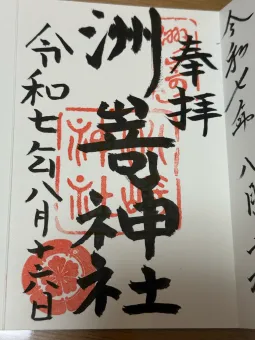 奉拝
洲嵜神社
令和七年八月十六日
令和七年
八月十